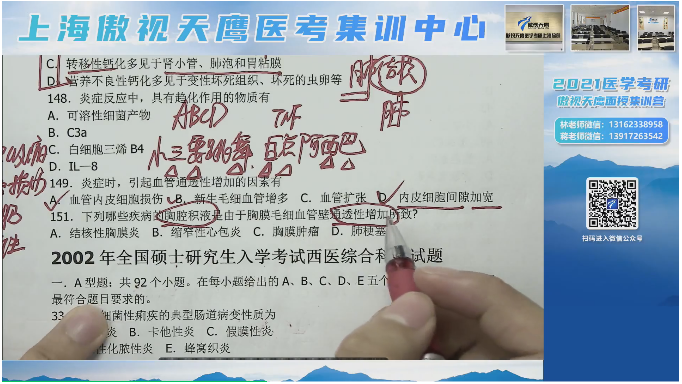 上海傲视天鹰医考集训中心
C. 转移性钙化多见于肾小管、肺泡和胃粘膜
D. 营养不良性钙化多见于变性坏死组织、坏死的虫卵等
148. 炎症反应中，具有趋化作用的物质有
A. 可溶性细菌产物
ABCD
TNF
B. C3a
C. 白细胞三烯 B4
D. IL—8
149. 炎症时，引起血管通透性增加的因素有
A. 血管内皮细胞损伤 B. 新生毛细血管增多 C. 血管扩张 D. 内皮细胞间隙加宽
151. 下列哪些疾病的胸腔积液是由于胸膜毛细血管壁通透性增加所致?
A. 结核性胸膜炎 B. 缩窄性心包炎 C. 胸膜肿瘤 D. 肺梗塞
2002 年全国硕士研究生入学考试西医综合科 试题
一. A 型题: 共 92 个小题。在每小题给出的 A、B、C、D、E 五个
最符合题目要求的。
33 细菌性痢疾的典型肠道病变性质为
炎 B. 卡他性炎 C. 假膜性炎
性化脓性炎 E. 蜂窝织炎
2021医学考研
傲视天鹰面授集训营
林老师微信：13162338958
蒋老师微信：13917263542
扫码进入微信公众号